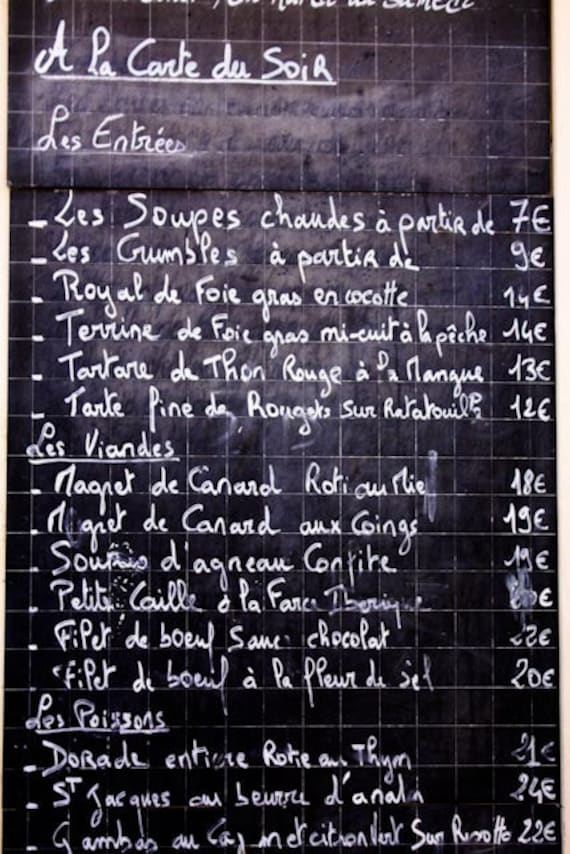 du Mardi au Samedi
A la Carte du Soir
Les Entrées
- Les Soupes chaudes à partir de 7€
- Les Crumbles à partir de 9€
- Royal de Foie gras en cocotte 14€
- Terrine de Foie gras mi-cuit à la pêche 14€
- Tartare de Thon Rouge à la Mangue 13€
- Tarte fine de Rougets sur Ratatouille 12€
Les Viandes
- Magret de Canard Roti au Miel 18€
- Magret de Canard aux Coings 19€
- Souris d'agneau Confite 19€
- Petite Caille à la Farce Iberique €
- Filet de boeuf Sauce chocolat 22€
- Filet de boeuf à la fleur de Sel 20€
Les Poissons
- Dorade entiere Rotie au Thym 21€
- St Jacques au beurre 24€
- Gambas au et citron Vert Sur Risotto 22€